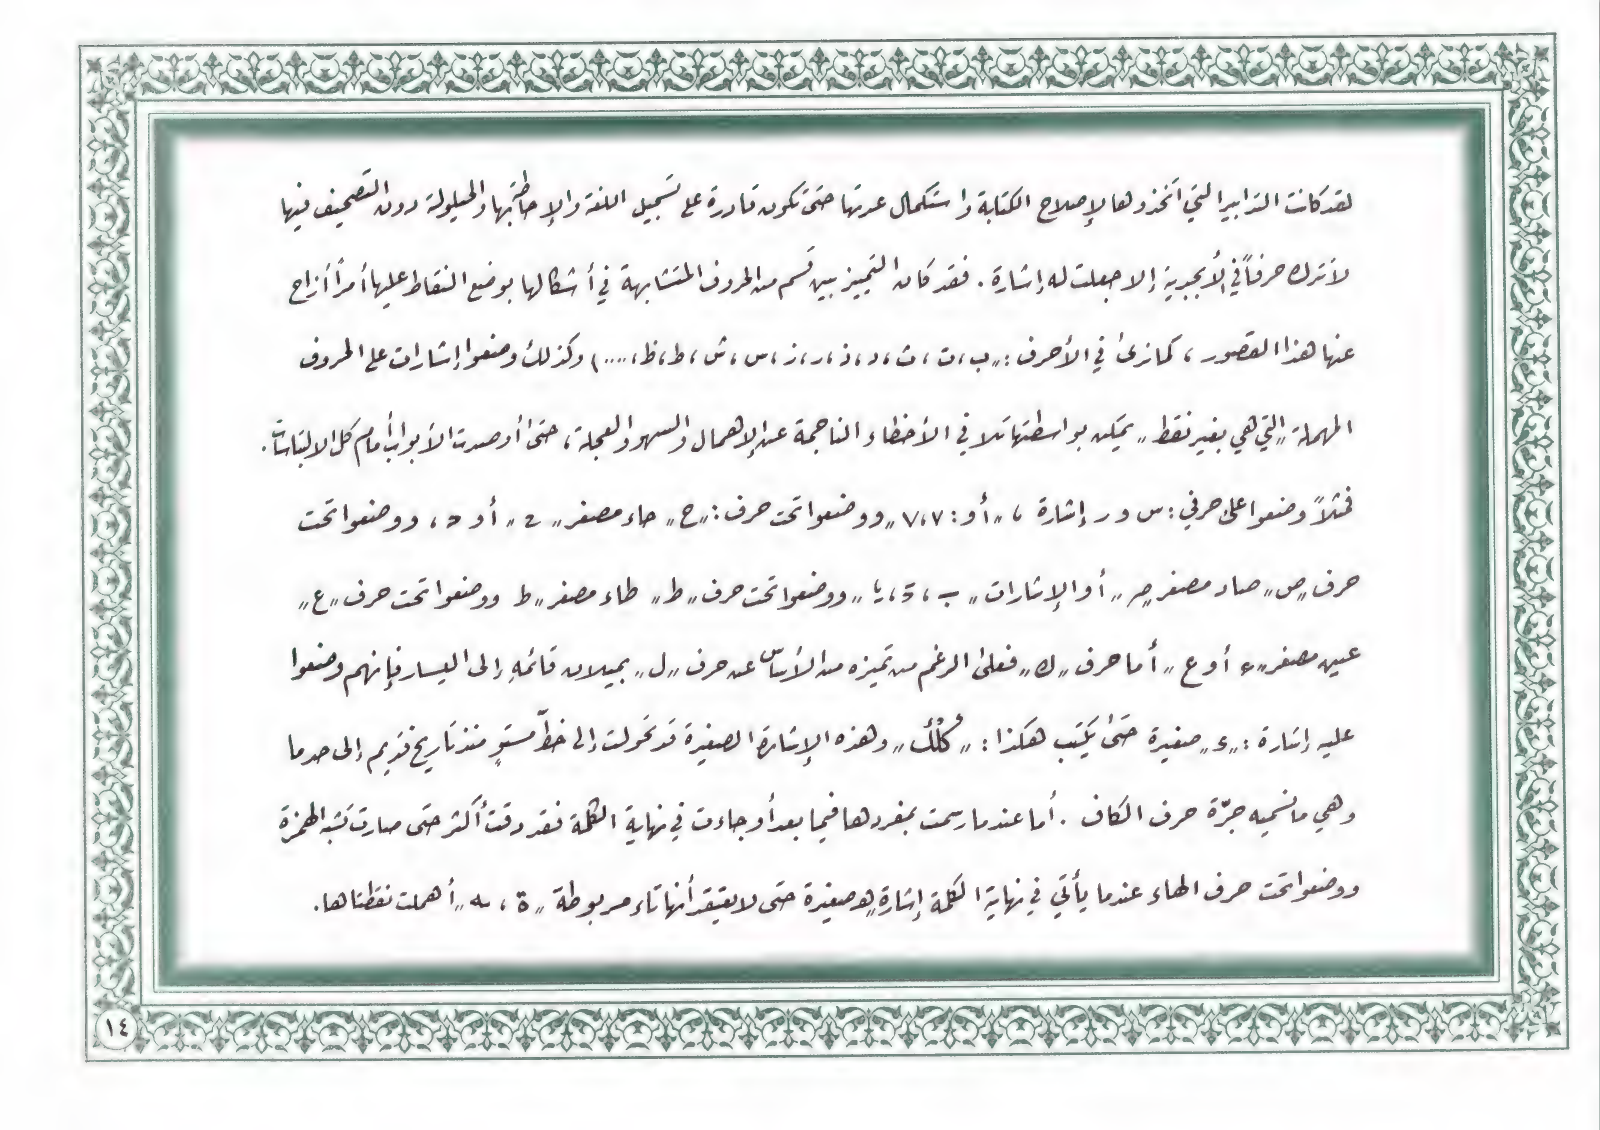 لقد كانت التدابير التي اتخذوها لإصلاح الكتابة واستكمال عدتها حتى تكون قادرة على تسجيل اللغة والإحاطة بها والحيلولة دون التصحيف فيها
لا تترك حرفاً في الأبجدية إلا جعلت له إشارة . فقد كان التمييز بين قسم من الحروف المتشابهة في أشكالها بوضع النقاط عليها أمراً أزاح
عنها هذا القصور ، كما نرى في الأحرف : „ ب ، ت ، ث ، د ، ذ ، ر ، ز ، س ، ش ، ط ، ظ ، .... ) وكذلك وضعوا إشارات على الحروف
المهملة „ التي هي بغير نقط „ يمكن بواسطتها تلافي الأخطاء الناجمة عن الإهمال والسهو والعجلة ، حتى أوصدت الأبواب أمام كل الالتباسات .
فمثلاً وضعوا على حرفي : س و ر إشارة ، „ أو : ٧ ، ٧ „ ووضعوا تحت حرف : „ ح „ حاء مصغر „ ح „ أو ح ، ووضعوا تحت
حرف „ ص „ صاد مصغر ص „ أو الإشارات „ ب ، „ ووضعوا تحت حرف „ ط „ طاء مصغر „ ط ووضعوا تحت حرف „ ع „
عين مصغر „ ء أو ع „ أما حرف „ ك „ فعلى الرغم من تميزه من الأساس عن حرف „ ل „ بميلان قائمه إلى اليسار فإنهم وضعوا
عليه إشارة : „ ء „ صغيرة حتى يكتب هكذا : „ كُلْكُ „ وهذه الإشارة الصغيرة قد تحولت إلى خطّ مستوٍ منذ تاريخ قديم إلى حد ما
وهي ما نسميه جرّة حرف الكاف . أما عندما رسمت بمفردها فيما بعد أو جاءت في نهاية الكلمة فقد دقت أكثر حتى صارت تشبه الهمزة
ووضعوا تحت حرف الهاء عندما يأتي في نهاية الكلمة إشارة هو صغيرة حتى لا يعتقد أنها تاء مربوطة „ ة ، ـه „ أهملت نقطتاها .
١٤